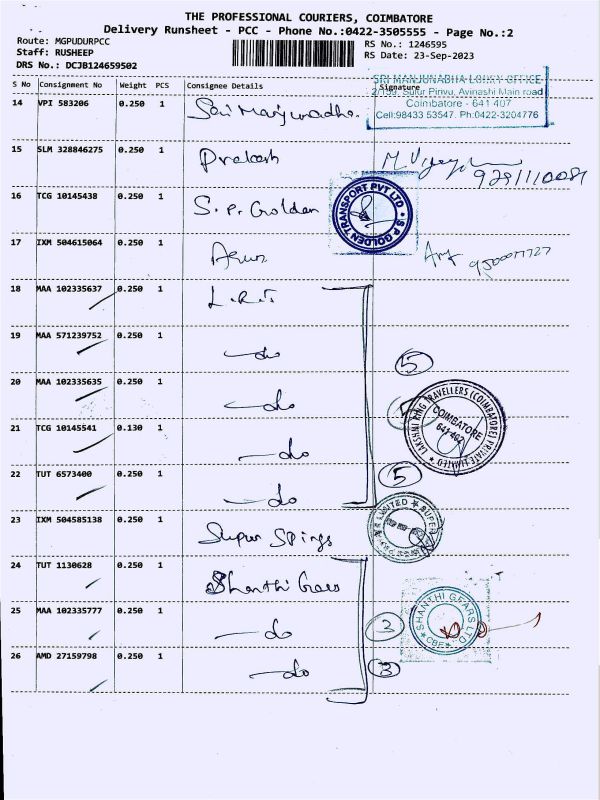 THE PROFESSIONAL COURIERS, COIMBATORE
Delivery Runsheet - PCC - Phone No.:0422-3505555 - Page No.:2
Route: MGPUDURPCC
RS No.: 1246595
Staff: RUSHEEP
RS Date: 23-Sep-2023
DRS No.: DCJB124659502
S No Consignment No Weight PCS Consignee Details Signature
14 VPI 583206 0.250 1
Coimbatore - 641 407
Cell:98433 53547. Ph:0422-3204776
15 SLM 328846275 0.250 1 Prakash
16 TCG 10145438 0.250 1 S. P. Golden
S P GOLDEN TRANSPORT PVT LTD
17 IXM 504615064 0.250 1 Arun
18 MAA 102335637 0.250 1 L.R.T.
19 MAA 571239752 0.250 1 do
5
20 MAA 102335635 0.250 1 do
COIMBATORE
641 402
21 TCG 10145541 0.130 1 do
22 TUT 6573400 0.250 1 do
5
23 IXM 504585138 0.250 1 Super Spings
24 TUT 1130628 0.250 1 Shanthi Gears
SHANTHI GEARS LTD
CBE
25 MAA 102335777 0.250 1 do
3
26 AMD 27159798 0.250 1 do
3